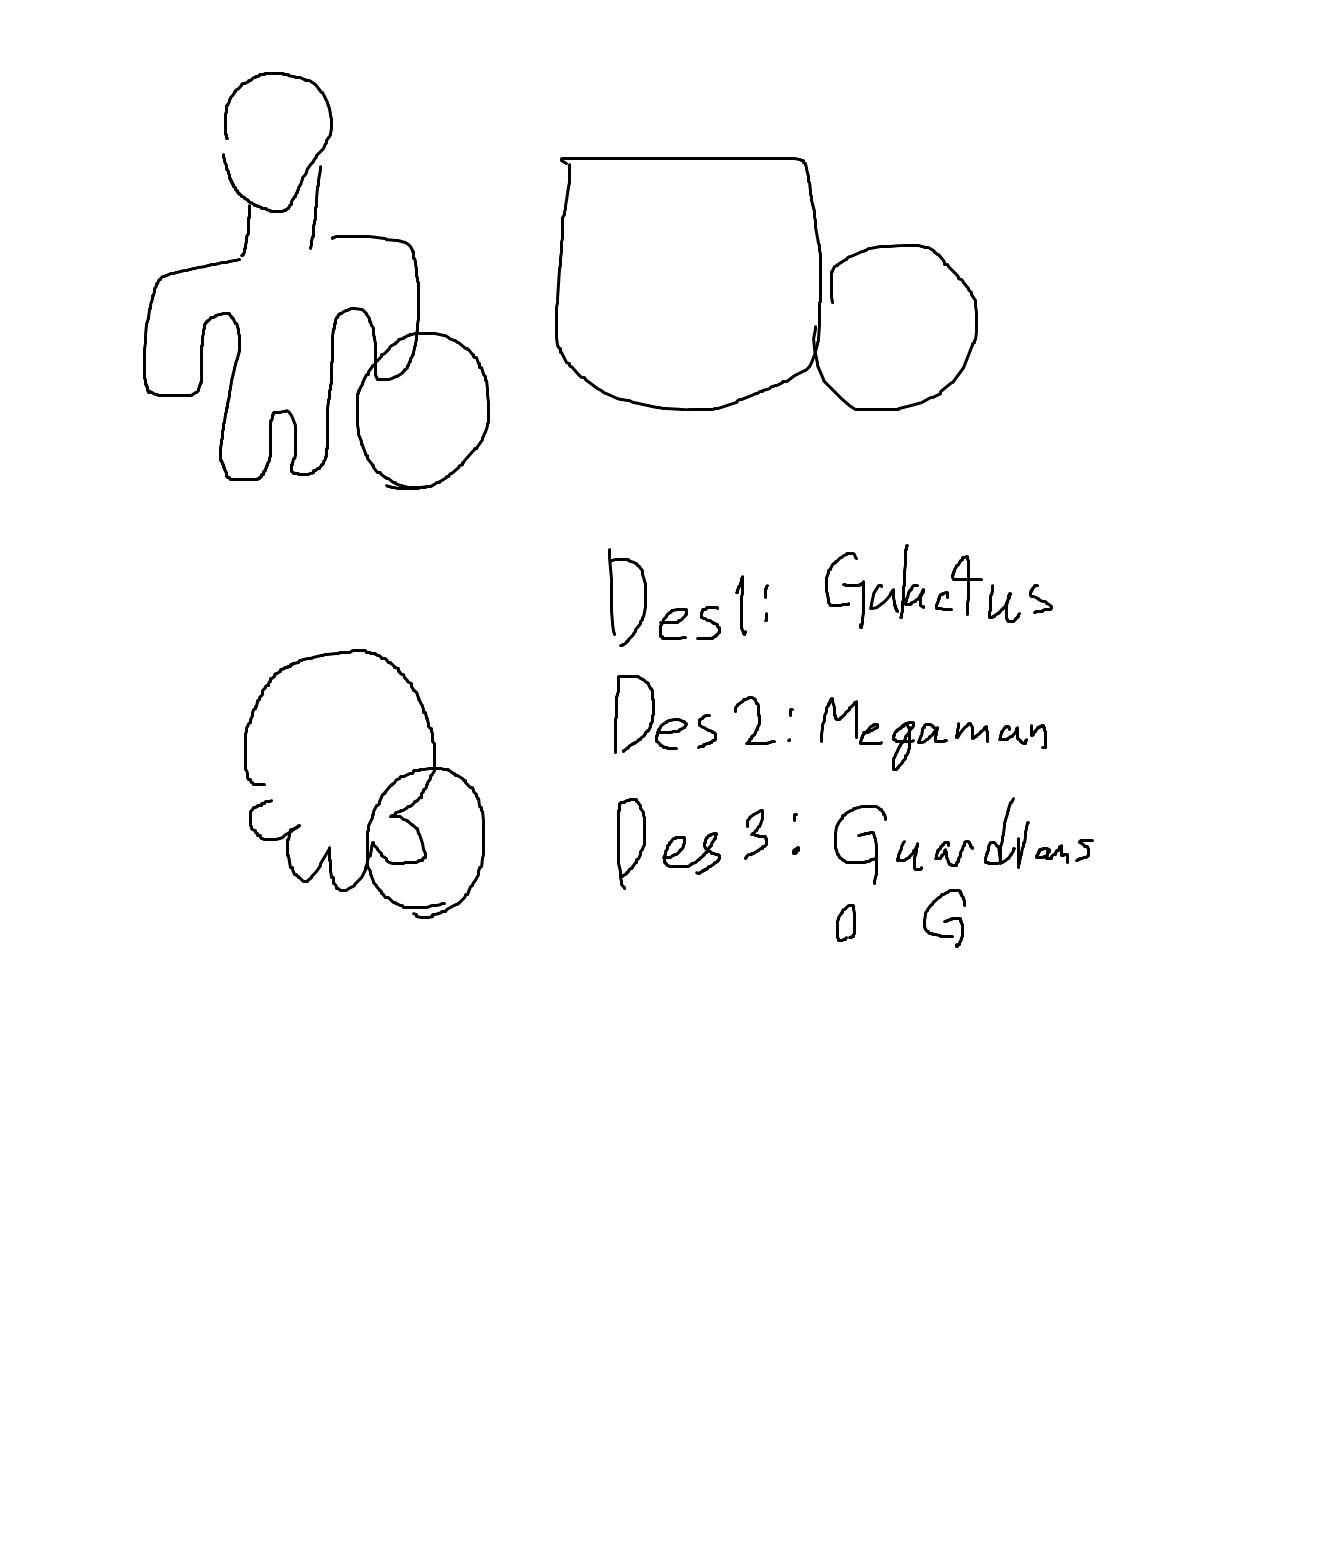 Des1: Galactus
Des2: Megaman
Des3: Guardians
O G